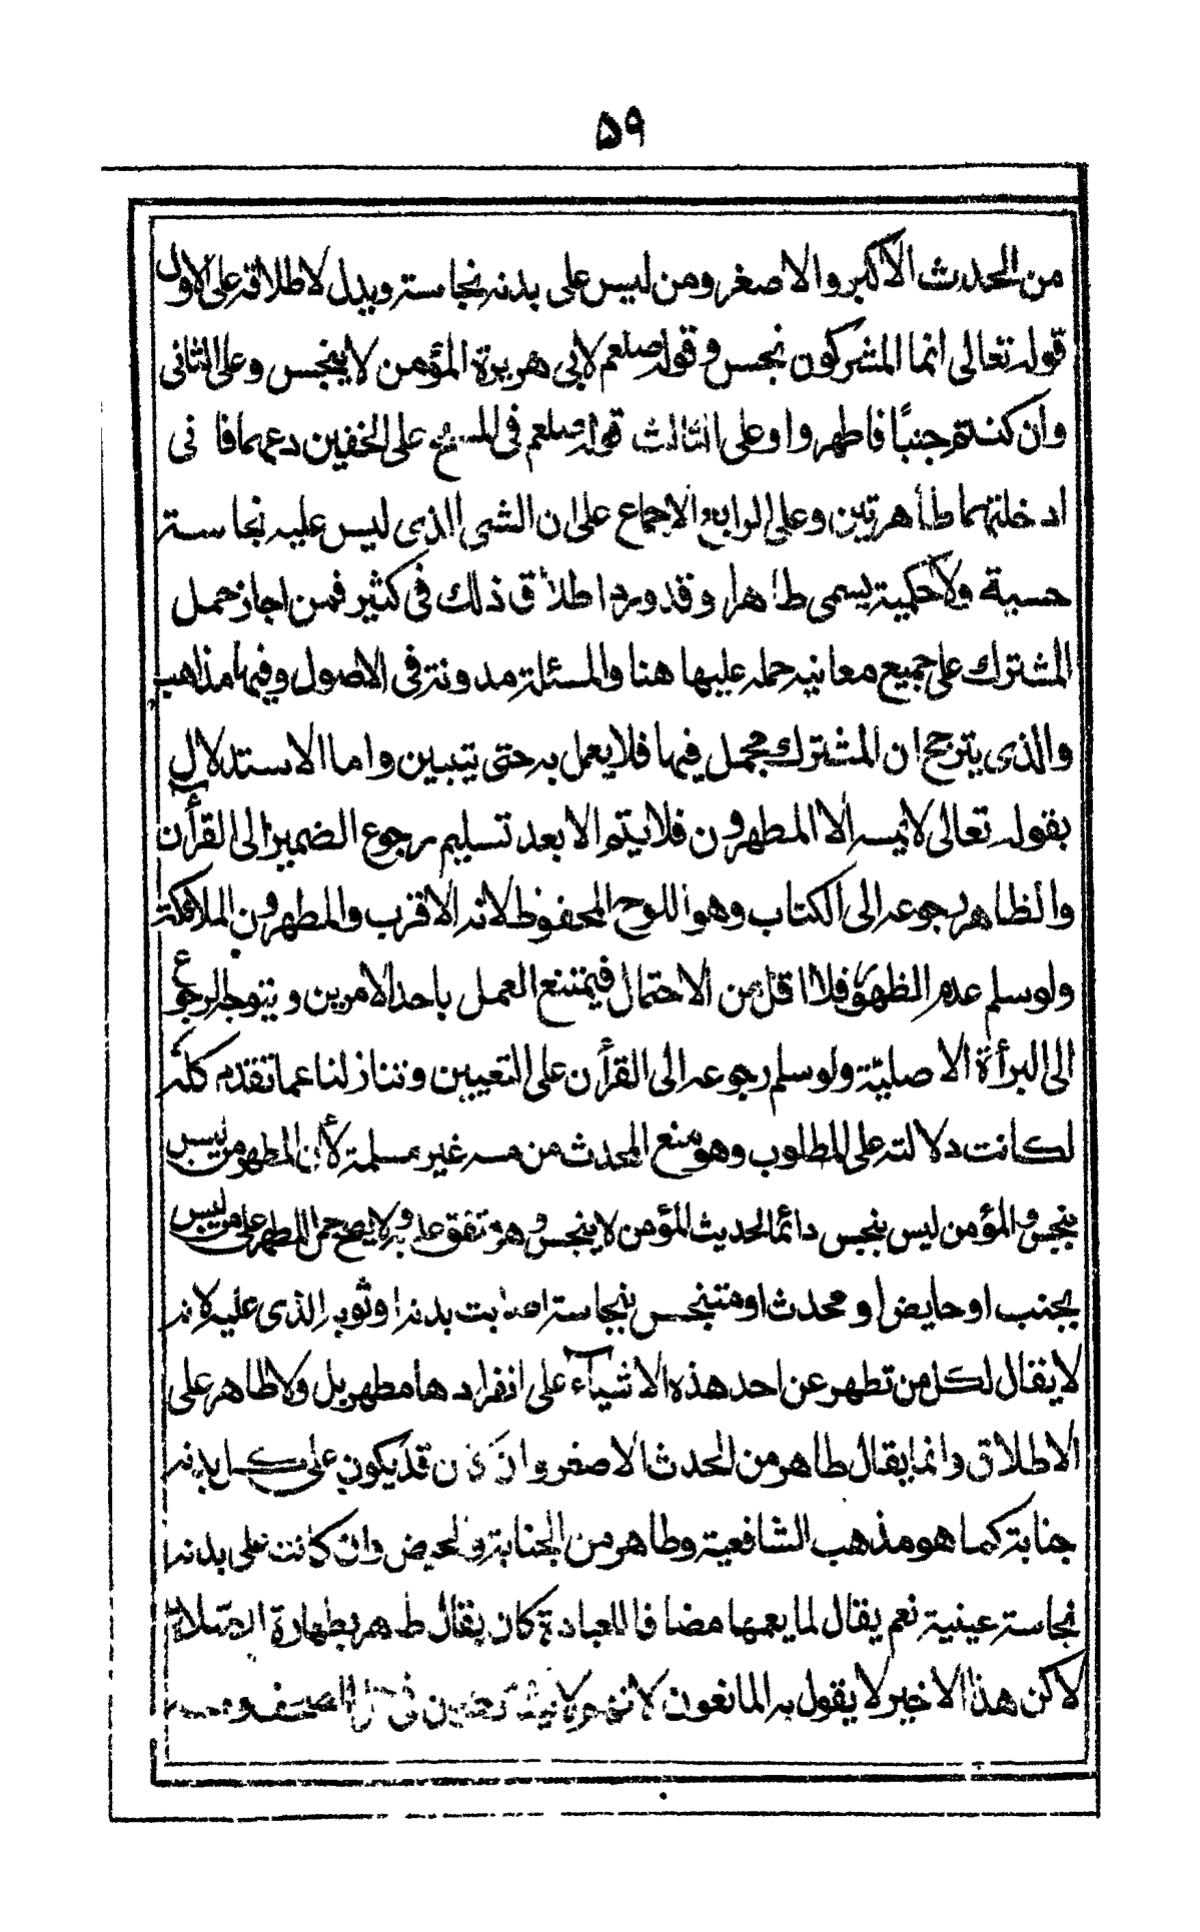 ۵۹
من الحدث الاكبر والاصغر ومن ليس على بدنه نجاسة ويدل لاطلاقه على الاول
قوله تعالى انما المشركون نجس وقوله صلعم لابى هريرة المؤمن لا ينجس وعلى الثانى
وان كنتم جنبًا فاطهروا وعلى الثالث قوله صلعم فى المسح على الخفين دعهما فانى
ادخلتهما طاهرتين وعلى الرابع الاجماع على ان الشى الذى ليس عليه نجاسة
حسية ولا حكمية يسمى طاهرا وقد ورد اطلاق ذلك فى كثير فمن اجاز حمل
المشترك على جميع معانيه حمله عليها هنا والمسئلة مدونة فى الاصول وفيها مذاهب
والذى يترجح ان المشترك مجمل فيها فلا يعمل به حتى يتبين واما الاستدلال
بقوله تعالى لا يمسه الا المطهرون فلا يتم الا بعد تسليم رجوع الضمير الى القرأن
والظاهر رجوعه الى الكتاب وهو اللوح المحفوظ لانه الاقرب والمطهرون الملائكة
ولو سلم عدم الظهور فلا اقل من الاحتمال فيمتنع العمل باحد الامرين ويتوجه الرجوع
الى البرأة الاصلية ولو سلم رجوعه الى القرأن على التعيين وتنازلنا عما تقدم كله
لكانت دلالته على المطلوب وهو منع المحدث من مسه غير مسلمة لأن المطهر من ليس
بنجس والمؤمن ليس بنجس دائما لحديث المؤمن لا ينجس وهو متفق عليه ولا يصح حمل المطهر على من ليس
بجنب او حايض او محدث او متنجس بنجاسة اصابت بدنه او ثوبه الذى عليه لانه
لا يقال لكل من تطهر عن احد هذه الاشياء على انفرادها مطهر بل ولا طاهر على
الاطلاق وانما يقال طاهر من الحدث الاصغر وان كان قد يكون على كل بدنه
جنابة كما هو مذهب الشافعية وطاهر من الجنابة والحيض وان كانت على بدنه
نجاسة عينية نعم يقال لما يعمها مضافا للعبادة كان يقال طهر بطهارة الصلاة
لاكن هذا الاخير لا يقول به المانعون لانهم لا فى المصحف